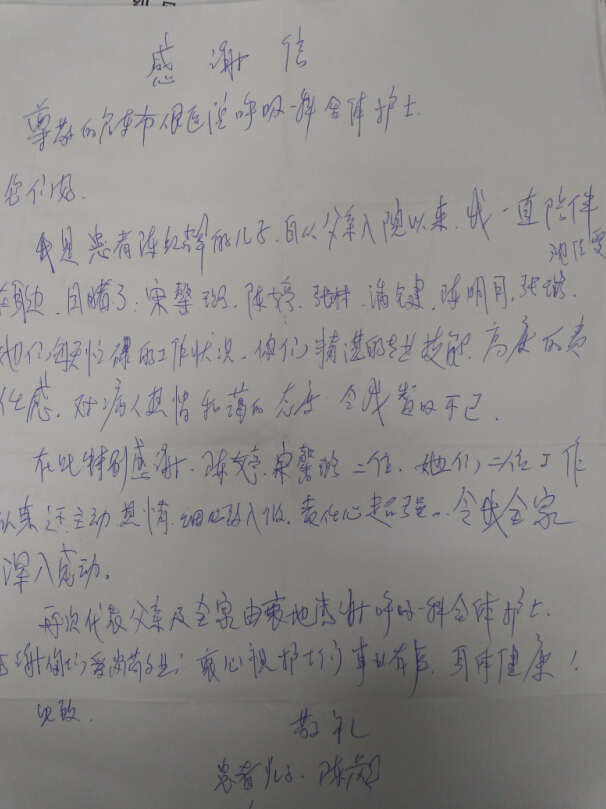 感谢信
尊敬的市人民医院呼吸一科全体护士
您们好.
我是患者陈红军的儿子,自从父亲入院以来,我一直陪伴
在身边,目睹了:宋馨璐、陈婷、张林、潘健、陈明月、张璐、
她们每天忙碌的工作状况,你们精湛的专业技能,高度的责
任感,对病人热情和蔼的态度,令我赞叹不已.
在此特别感谢.陈婷、宋馨璐二位,她们二位工作
认真还主动热情,细心,责任心超强.令我全家
深入感动。
再次代表父亲及全家由衷地感谢呼吸一科全体护士.
感谢你们,衷心祝护士们事业有成,身体健康!
此致.
敬礼
患者儿子.陈